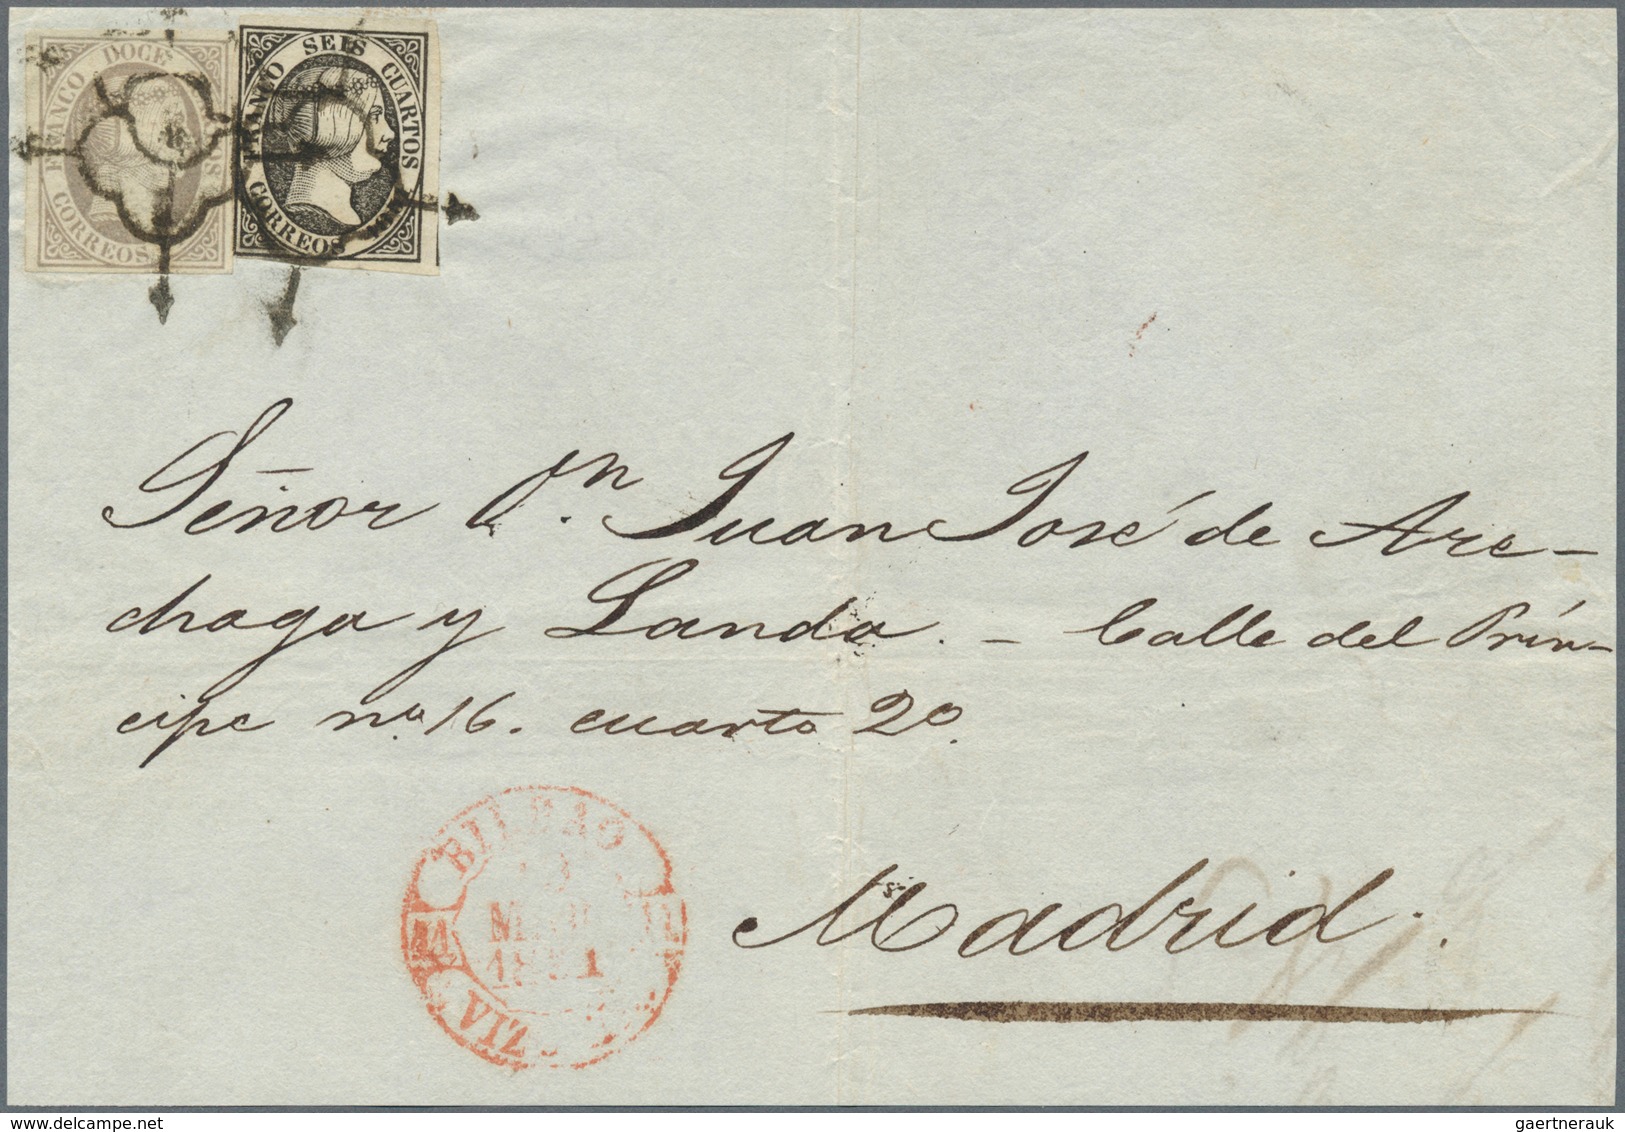 FRANCO DOCE CUARTOS
CORREOS
FRANCO SEIS CUARTOS
CORREOS 1851
Señor Dn. Juan José de Are-
chaga y Landa. - Calle del Prín-
cipe no. 16. cuarto 2o.
BILBAO
1851
VIZ
Madrid.
gaertnerauk – delcampe.net